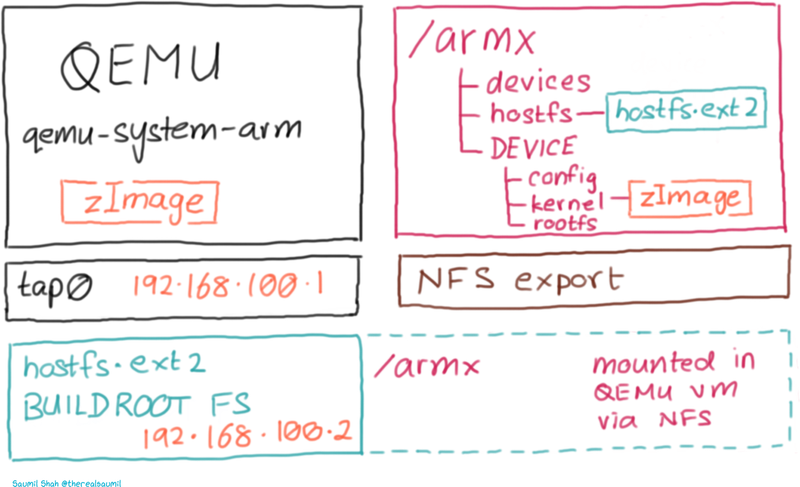 QEMU
qemu-system-arm
zImage
/armx
devices
hostfs
hostfs.ext2
DEVICE
config
kernel
zImage
rootfs
tap0
192.168.100.1
NFS export
hostfs.ext2
BUILDROOT FS
192.168.100.2
/armx
mounted in
QEMU vm
via NFS
Saumil Shah @therealsaumil